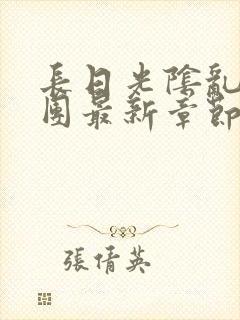 長日光陰亂
園最新章節
張倩英